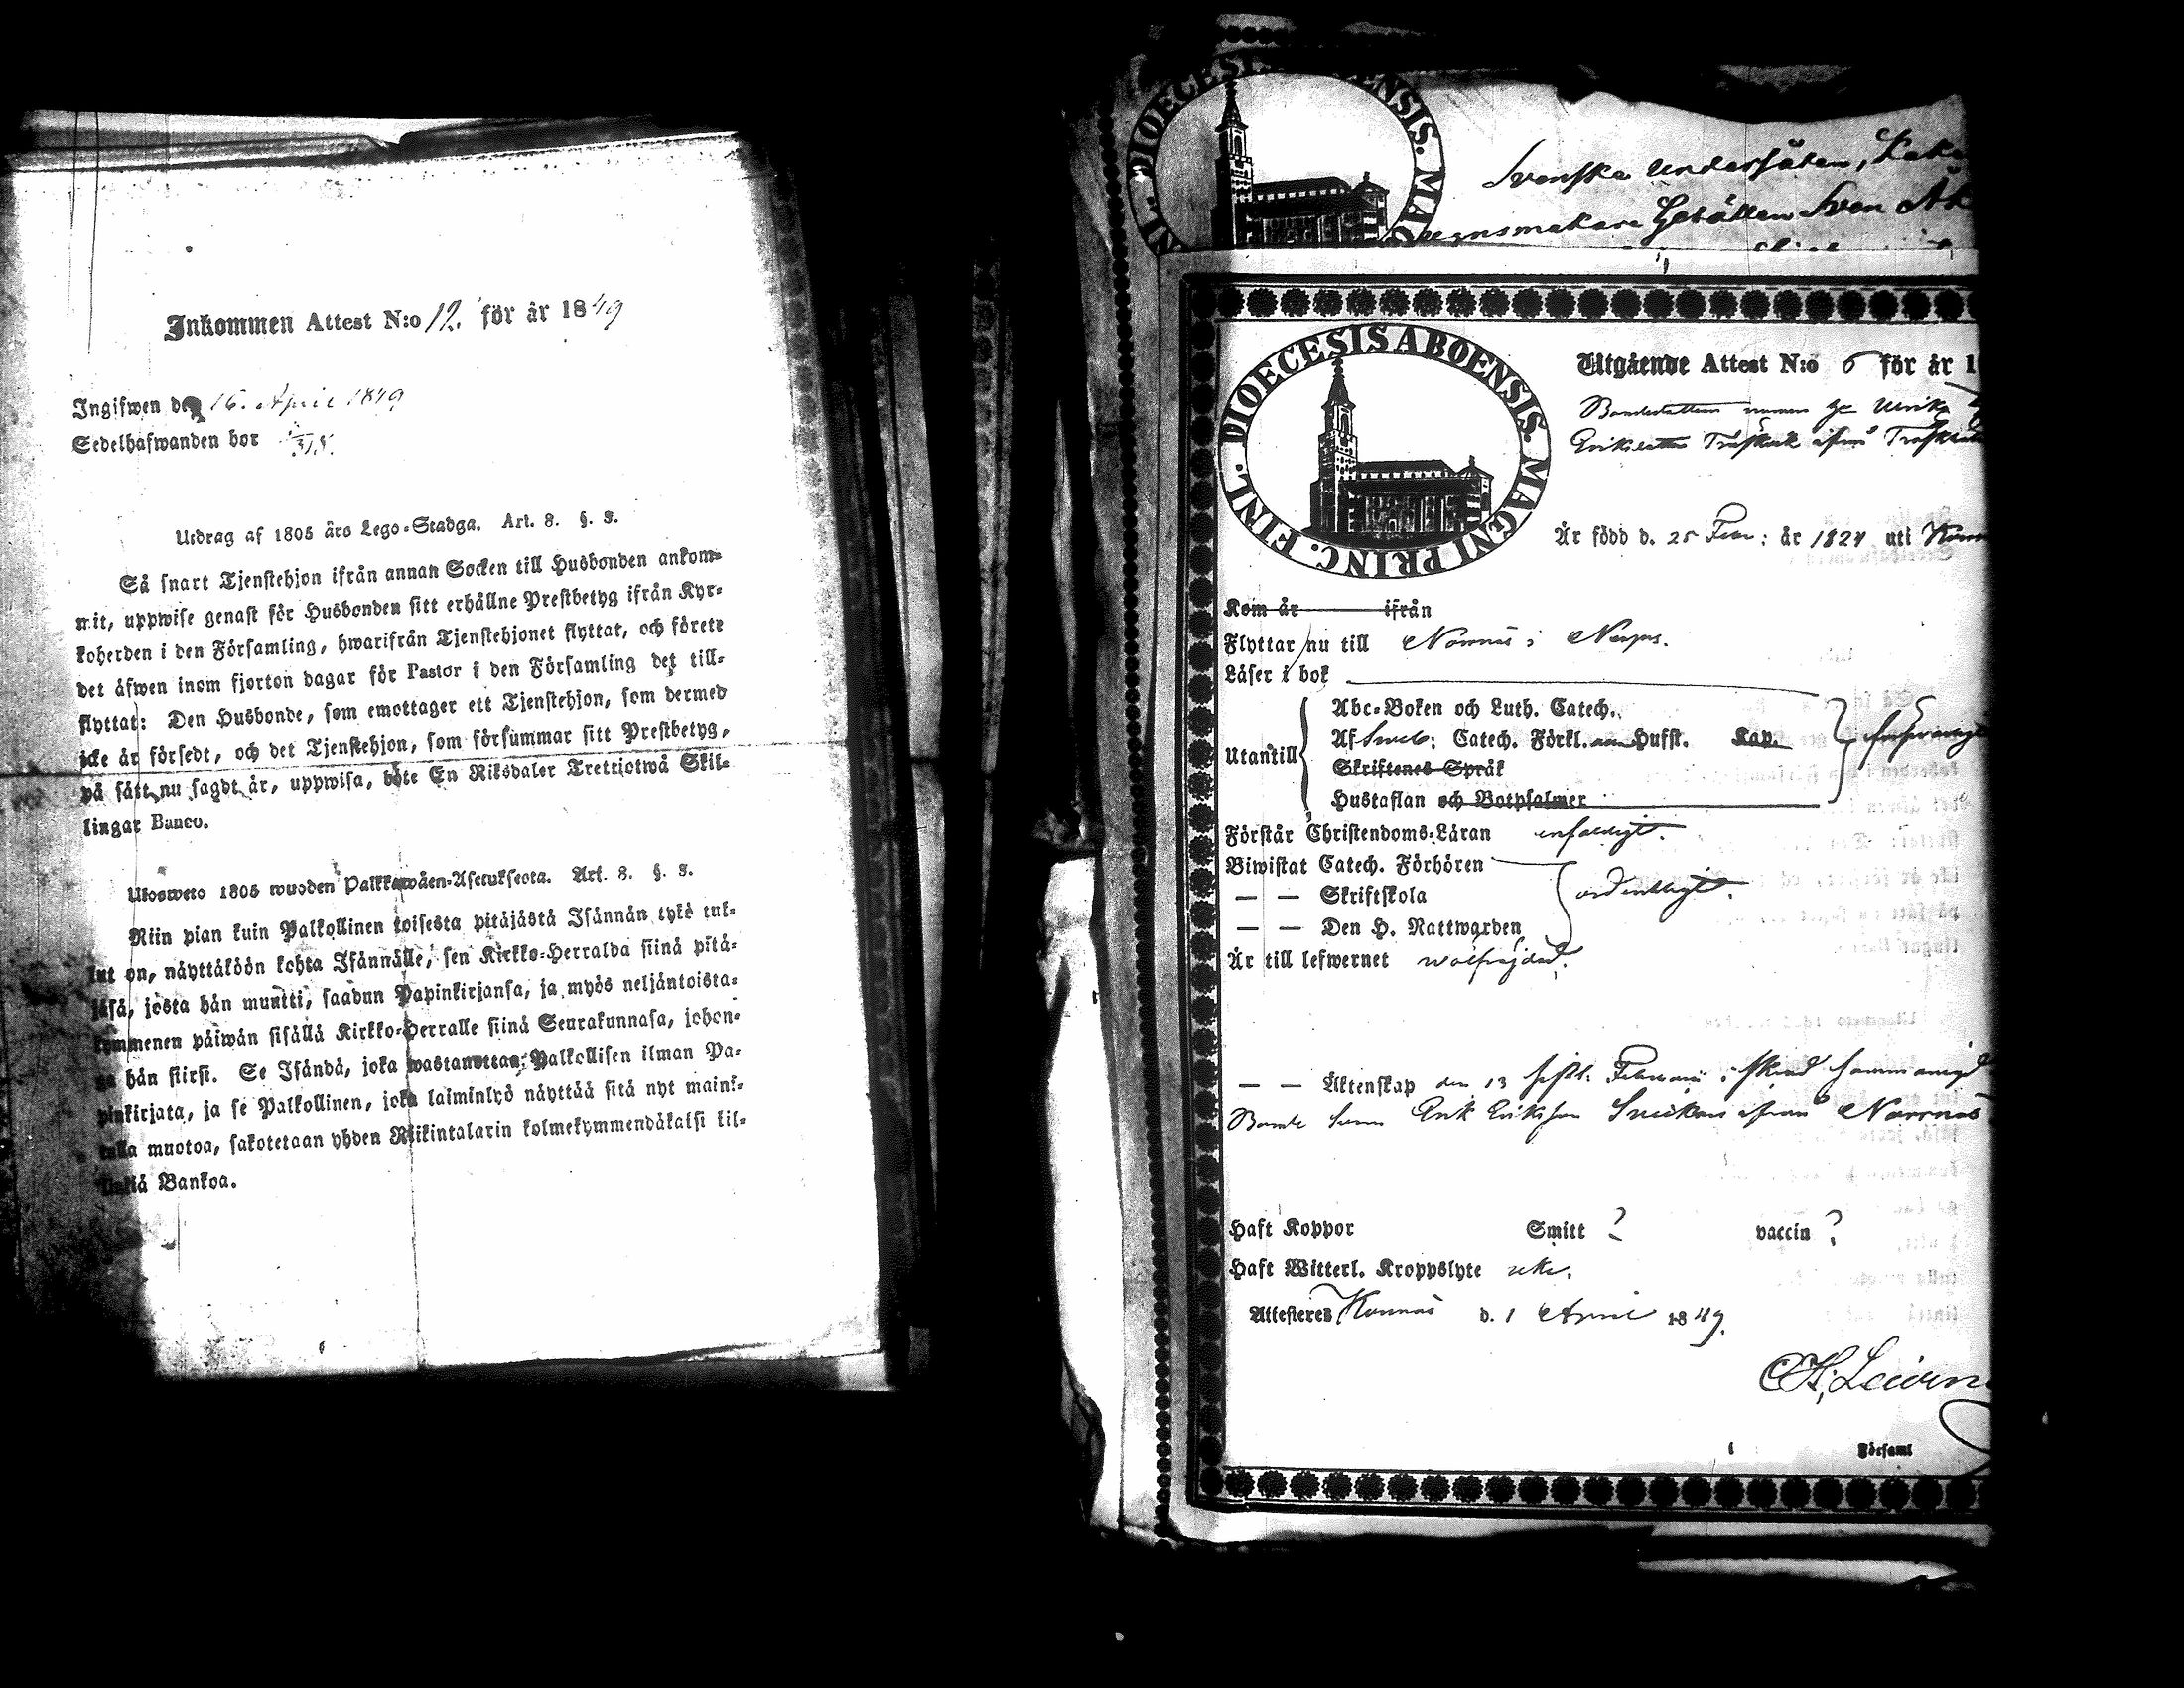 Inkommen Attest N:o 12. för år 1849
Ingifwen den 16. April 1849
Sedelhafwanden bor
Utdrag af 1805 års Lego-Stadga. Art. 8. §. 3.
Så snart Tjenstehjon ifrån annan Socken till Husbonden ankom-
mit, uppwise genast för Husbonden sitt erhållne Prestbetyg ifrån Kyr-
koherden i den Församling, hwarifrån Tjenstehjonet flyttat, och förete
det äfwen inom fjorton dagar för Pastor i den Församling det till-
flyttat: Den Husbonde, som emottager ett Tjenstehjon, som dermed
icke är försedt, och det Tjenstehjon, som försummar sitt Prestbetyg,
på sätt nu sagdt är, uppwisa, böte En Riksdaler Trettiotwå Skil-
lingar Banco.
Ulosweto 1805 wuoden Palkkawäen-Asetuksesta. Art. 8. §. 3.
Niin pian kuin Palkollinen toisesta pitäjästä Isännän tykö tul-
lut on, näyttäköön kohta Isännälle, sen Kirkko-Herralda siinä pitä-
jäsä, josta hän muutti, saadun Papinkirjansa, ja myös neljäntoista-
kymmenen päiwän sisällä Kirkko-Herralle siinä Seurakunnasa, johon-
ga hän siirsi. Se Isändä, joka wastanottaa Palkollisen ilman Pa-
pinkirjata, ja se Palkollinen, joka laiminlyö näyttää sitä nyt maini-
tulla muotoa, sakotetaan yhden Riikintalarin kolmekymmendäkaksi kil-
linkiä Bankoa.
DIOECESIS ABOENSIS. MAG
FINL.
Svenske Undersåten,
Gesällen Sven
DIOECESIS ABOENSIS. MAGNI PRINC. FINL.
Utgående Attest N:o 6 för år 1
Bondedottren Ulrika
Eriksdotter Träskbäck ifrån
Är född d. 25 Febr: år 1824 uti
Kom år ifrån
Flyttar nu till Norrnäs i Nerpes.
Läser i bok
Utantill
Abc-Boken och Luth. Catech.
Af Sweb: Catech. Förkl. Hufst. Kap.
Skriftenes Språk
Hustaflan och Botpsalmer
Förstår Christendoms-Läran enfaldigt.
Biwistat Catech. Förhören
— — Skriftskola ordentligt.
— — Den H. Nattwarden
Är till lefwernet wälfräjdad.
— — Äktenskap den 13 sistl. Februarii
Bonde Sonen Erik Eriksson ifrån Norrnäs
Haft Koppor Smitt ? vaccin ?
Haft Witterl. Kroppslyte icke.
Attesteras d. 1 April 1849.
Församl